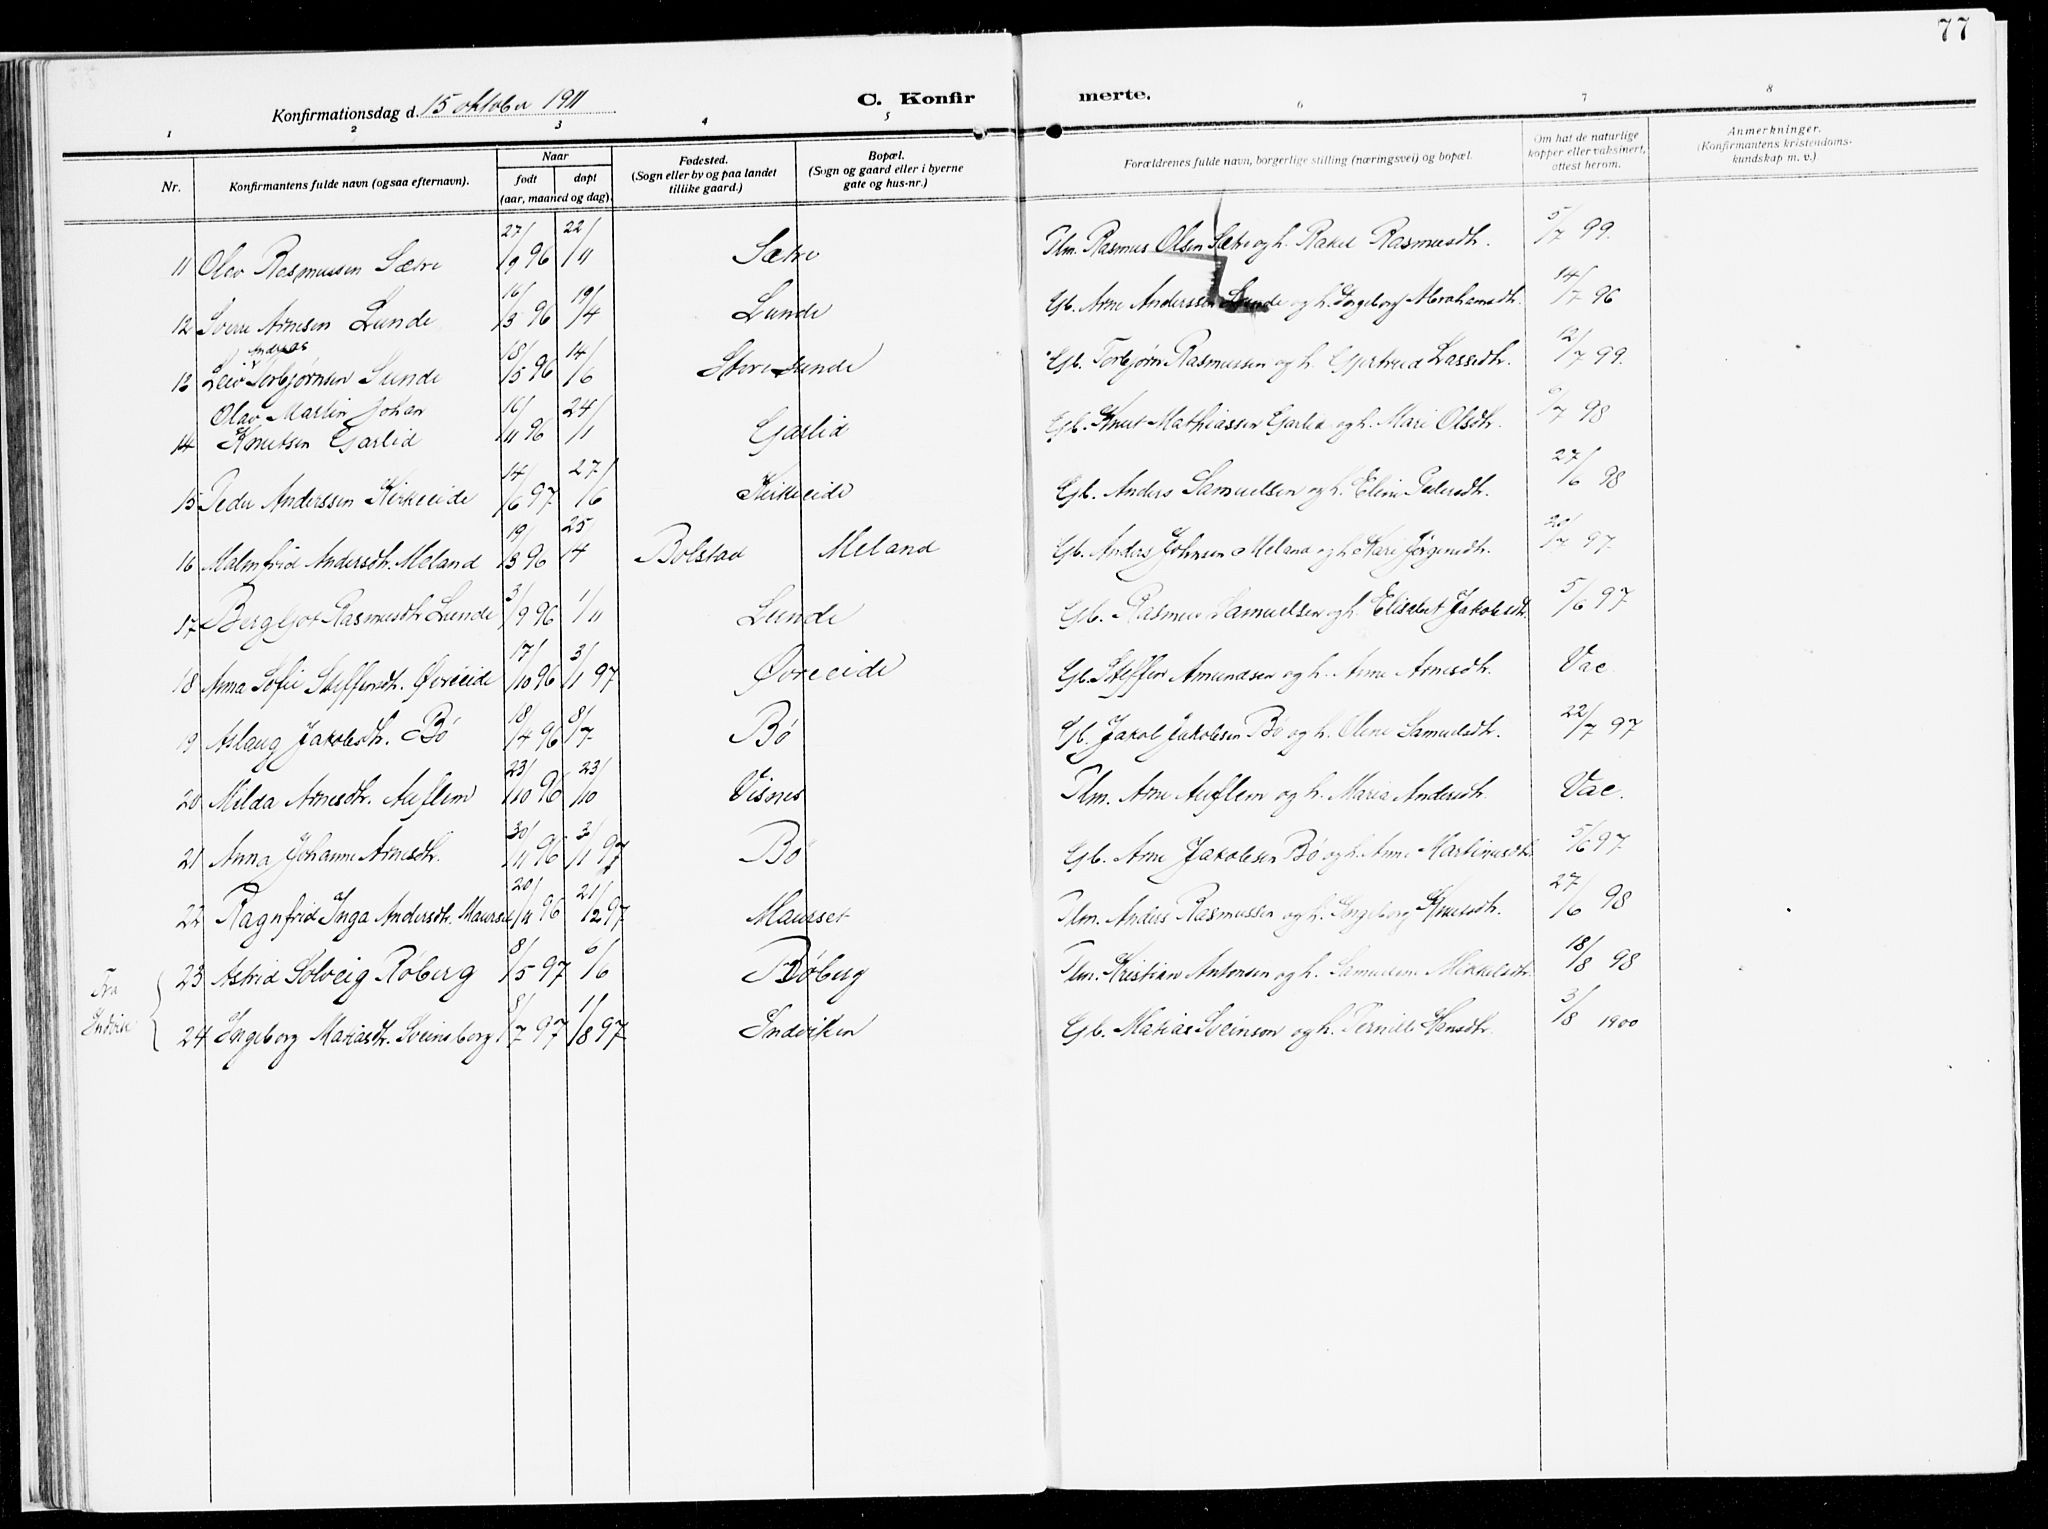 77
Konfirmationsdag d. 15 oktober 1911
C. Konfir merte.
1 2 3 4 5 6 7 8
Nr. Konfirmantens fulde navn (ogsaa efternavn). Naar født døpt (aar, maaned og dag). Fødested. (Sogn eller by og paa landet tillike gaard.) Bopæl. (Sogn og gaard eller i byerne gate og hus-nr.) Forældrenes fulde navn, borgerlige stilling (næringsvei) og bopæl. Om hat de naturlige kopper eller vaksinert, attest herom. Anmerkninger. (Konfirmantens kristendoms-kundskap m. v.)
11 Olav Rasmussen Sætre 27/9 96 22/11 Sætre Tlm. Rasmus Olsen Sætre og h. Rakel Rasmusdtr. 5/7 99.
12 Sverre Arnesen Lunde 16/3 96 19/4 Lunde Gb. Arne Anderssen Lunde og h. Ingeborg Abrahamsdtr. 14/7 96
Andreas
13 Leiv Torbjørnsen Sunde 18/5 96 14/6 Storesunde Gb. Torbjørn Rasmussen og h. Gjertrud Lassedtr. 12/7 99.
Olav Martin Johan
14 Knutsen Garlid 16/11 96 24/1 Garlid Gb. Knut Mathiassen Garlid og h. Mari Olsdtr. /7 98
15 Peder Anderssen Kirkeeide 14/6 97 27/6 Kirkeeide Gb. Anders Samuelsen og h. Eline Pedersdtr. 27/6 98
16 Malmfrid Andersdtr. Meland 19/3 96 25/4 Bolstad Meland Gb. Anders Johnsen Meland og h. Kari Jørgensdtr. 20/7 97.
17 Bergljot Rasmusdtr. Lunde 3/9 96 1/11 Lunde Gb. Rasmus Samuelsen og h. Elisabet Jakobsdtr. 5/6 97
18 Anna Sofie Steffensdtr. Øvreeide 17/10 96 3/1 97 Øvreeide Gb. Steffen Amundsen og h. Anne Arnesdtr. Vac.
19 Aslaug Jakobsdtr. Bø 18/4 96 8/7 Bø Gb. Jakob Jakobsen Bø og h. Oline Samuelsdtr. 22/7 97
20 Milda Arnesdtr. Auflem 23/10 96 23/10 Visnes Tlm. Arne Auflem og h. Maria Andersdtr. Vac.
21 Anna Johanne Arnesdtr. 30/11 96 3/1 97 Bø Gb. Arne Jakobsen Bø og h. Anne Martinusdtr. 5/6 97
22 Ragnfrid Inga Andersdtr. Maurset 20/11 96 21/12 97 Maurset Tlm. Anders Rasmussen og h. Ingeborg Knutsdtr. 27/6 98
Fra
23 Astrid Solveig Røberg 8/5 97 6/6 Røberg Tlm. Kristian Antonsen og h. Samueline Mikkelsdtr. 18/8 98
24 Ingeborg Matiasdtr. Sveinsborg 8/7 97 1/8 97 Indviken Gb. Matias Sveinson og h. Pernille Hansdtr. 3/8 1900